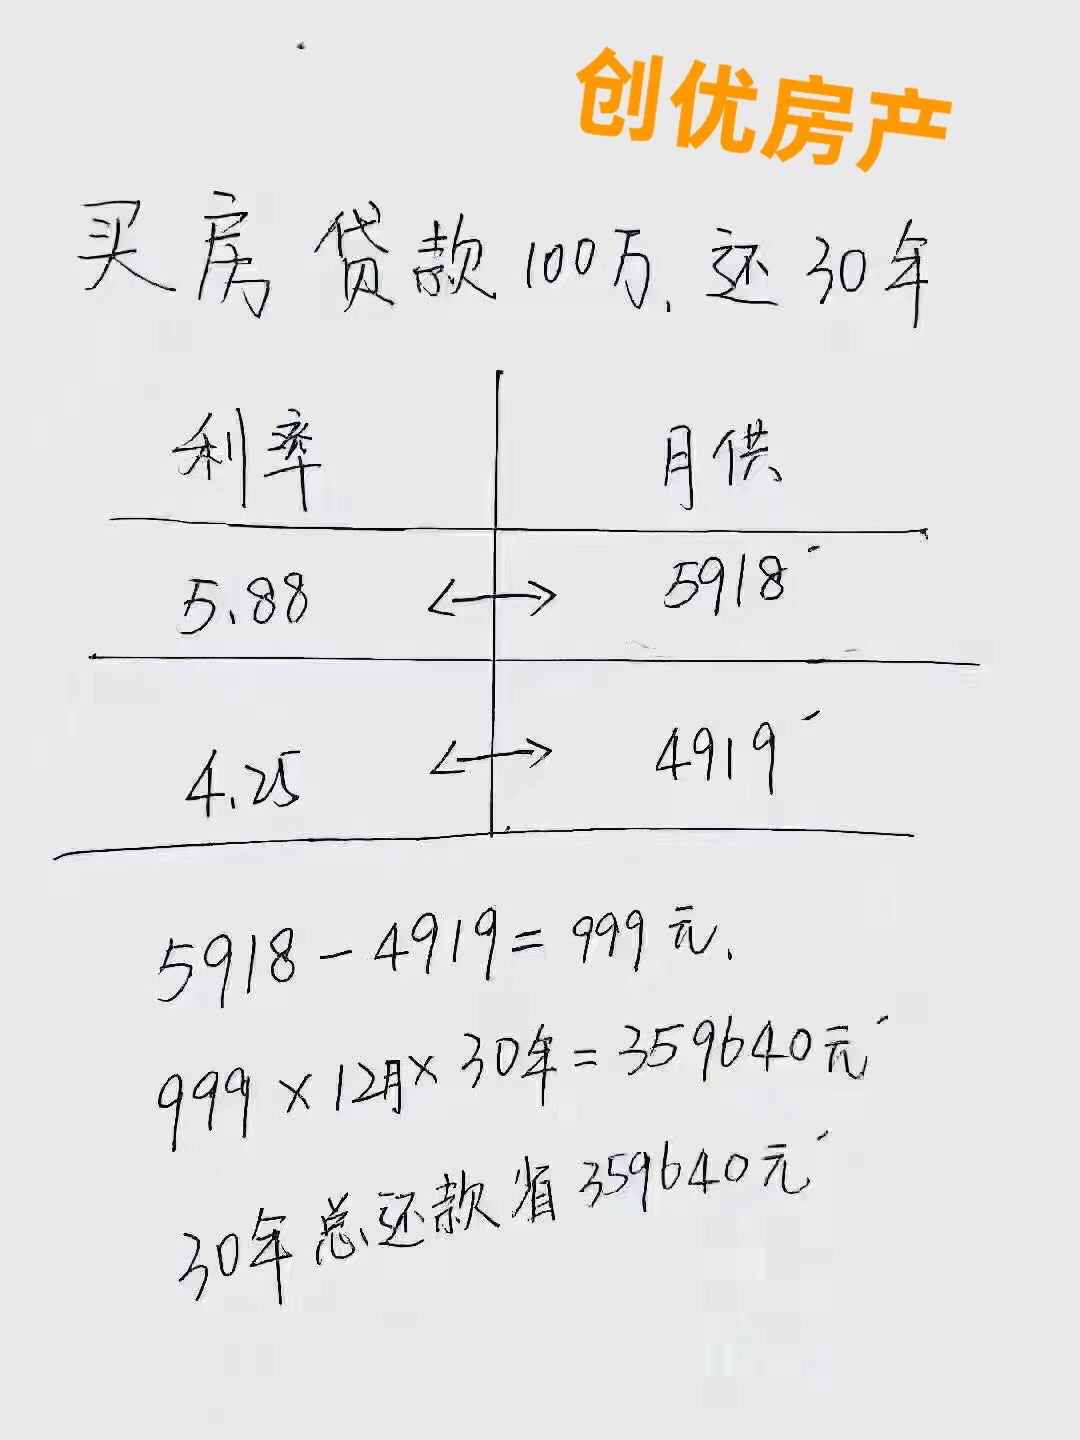 创优房产
买房贷款100万.还30年
利率 月供
5.88 ↔ 5918
4.25 ↔ 4919
5918-4919=999元.
999×12月×30年=359640元
30年总还款省359640元